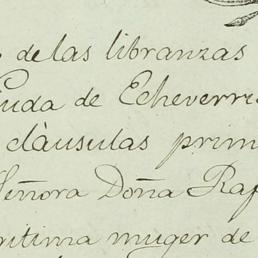 de las libranzas
uda de Echeverri
clàusulas prim
Señora Doña Raf
itima muger de